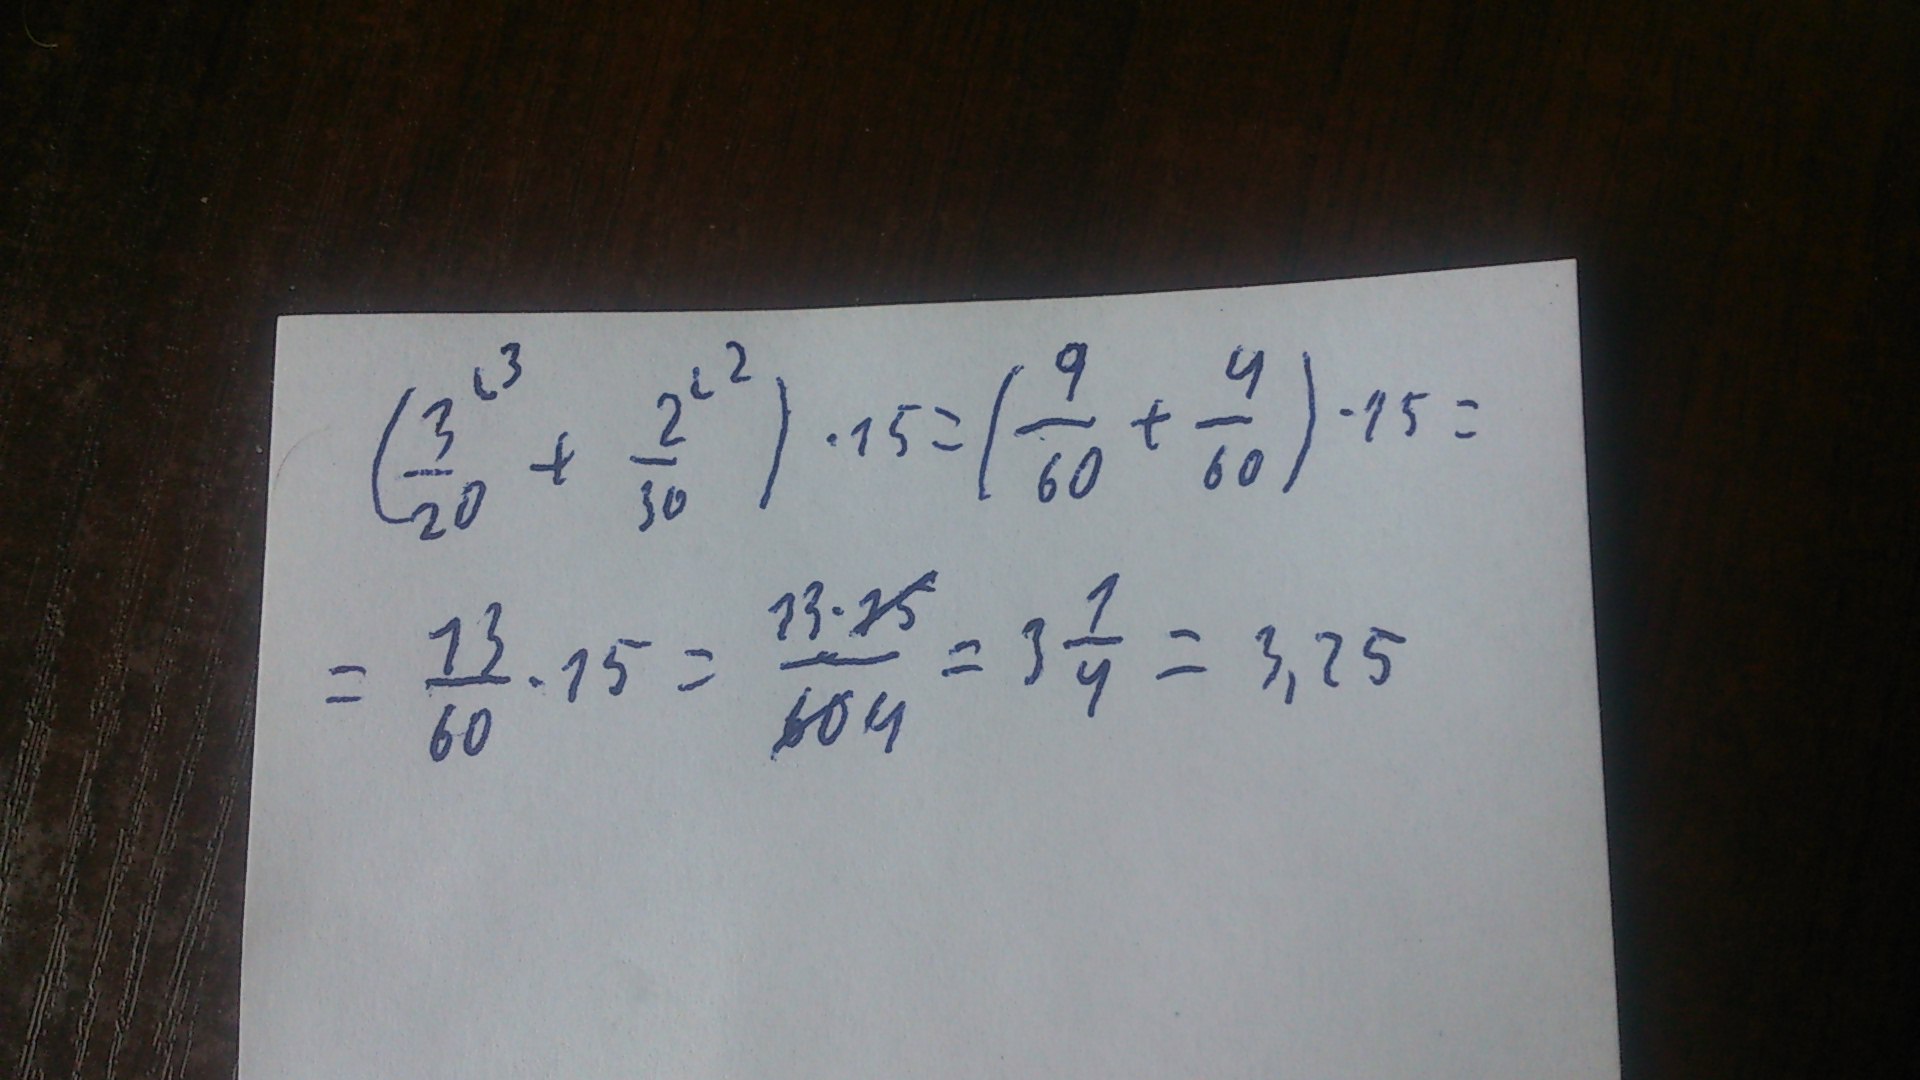 (3/20 ⁽³ + 2/30 ⁽²) · 15 = (9/60 + 4/60) · 15 =
= 13/60 · 15 = 13·15/60 4 = 3 1/4 = 3,25